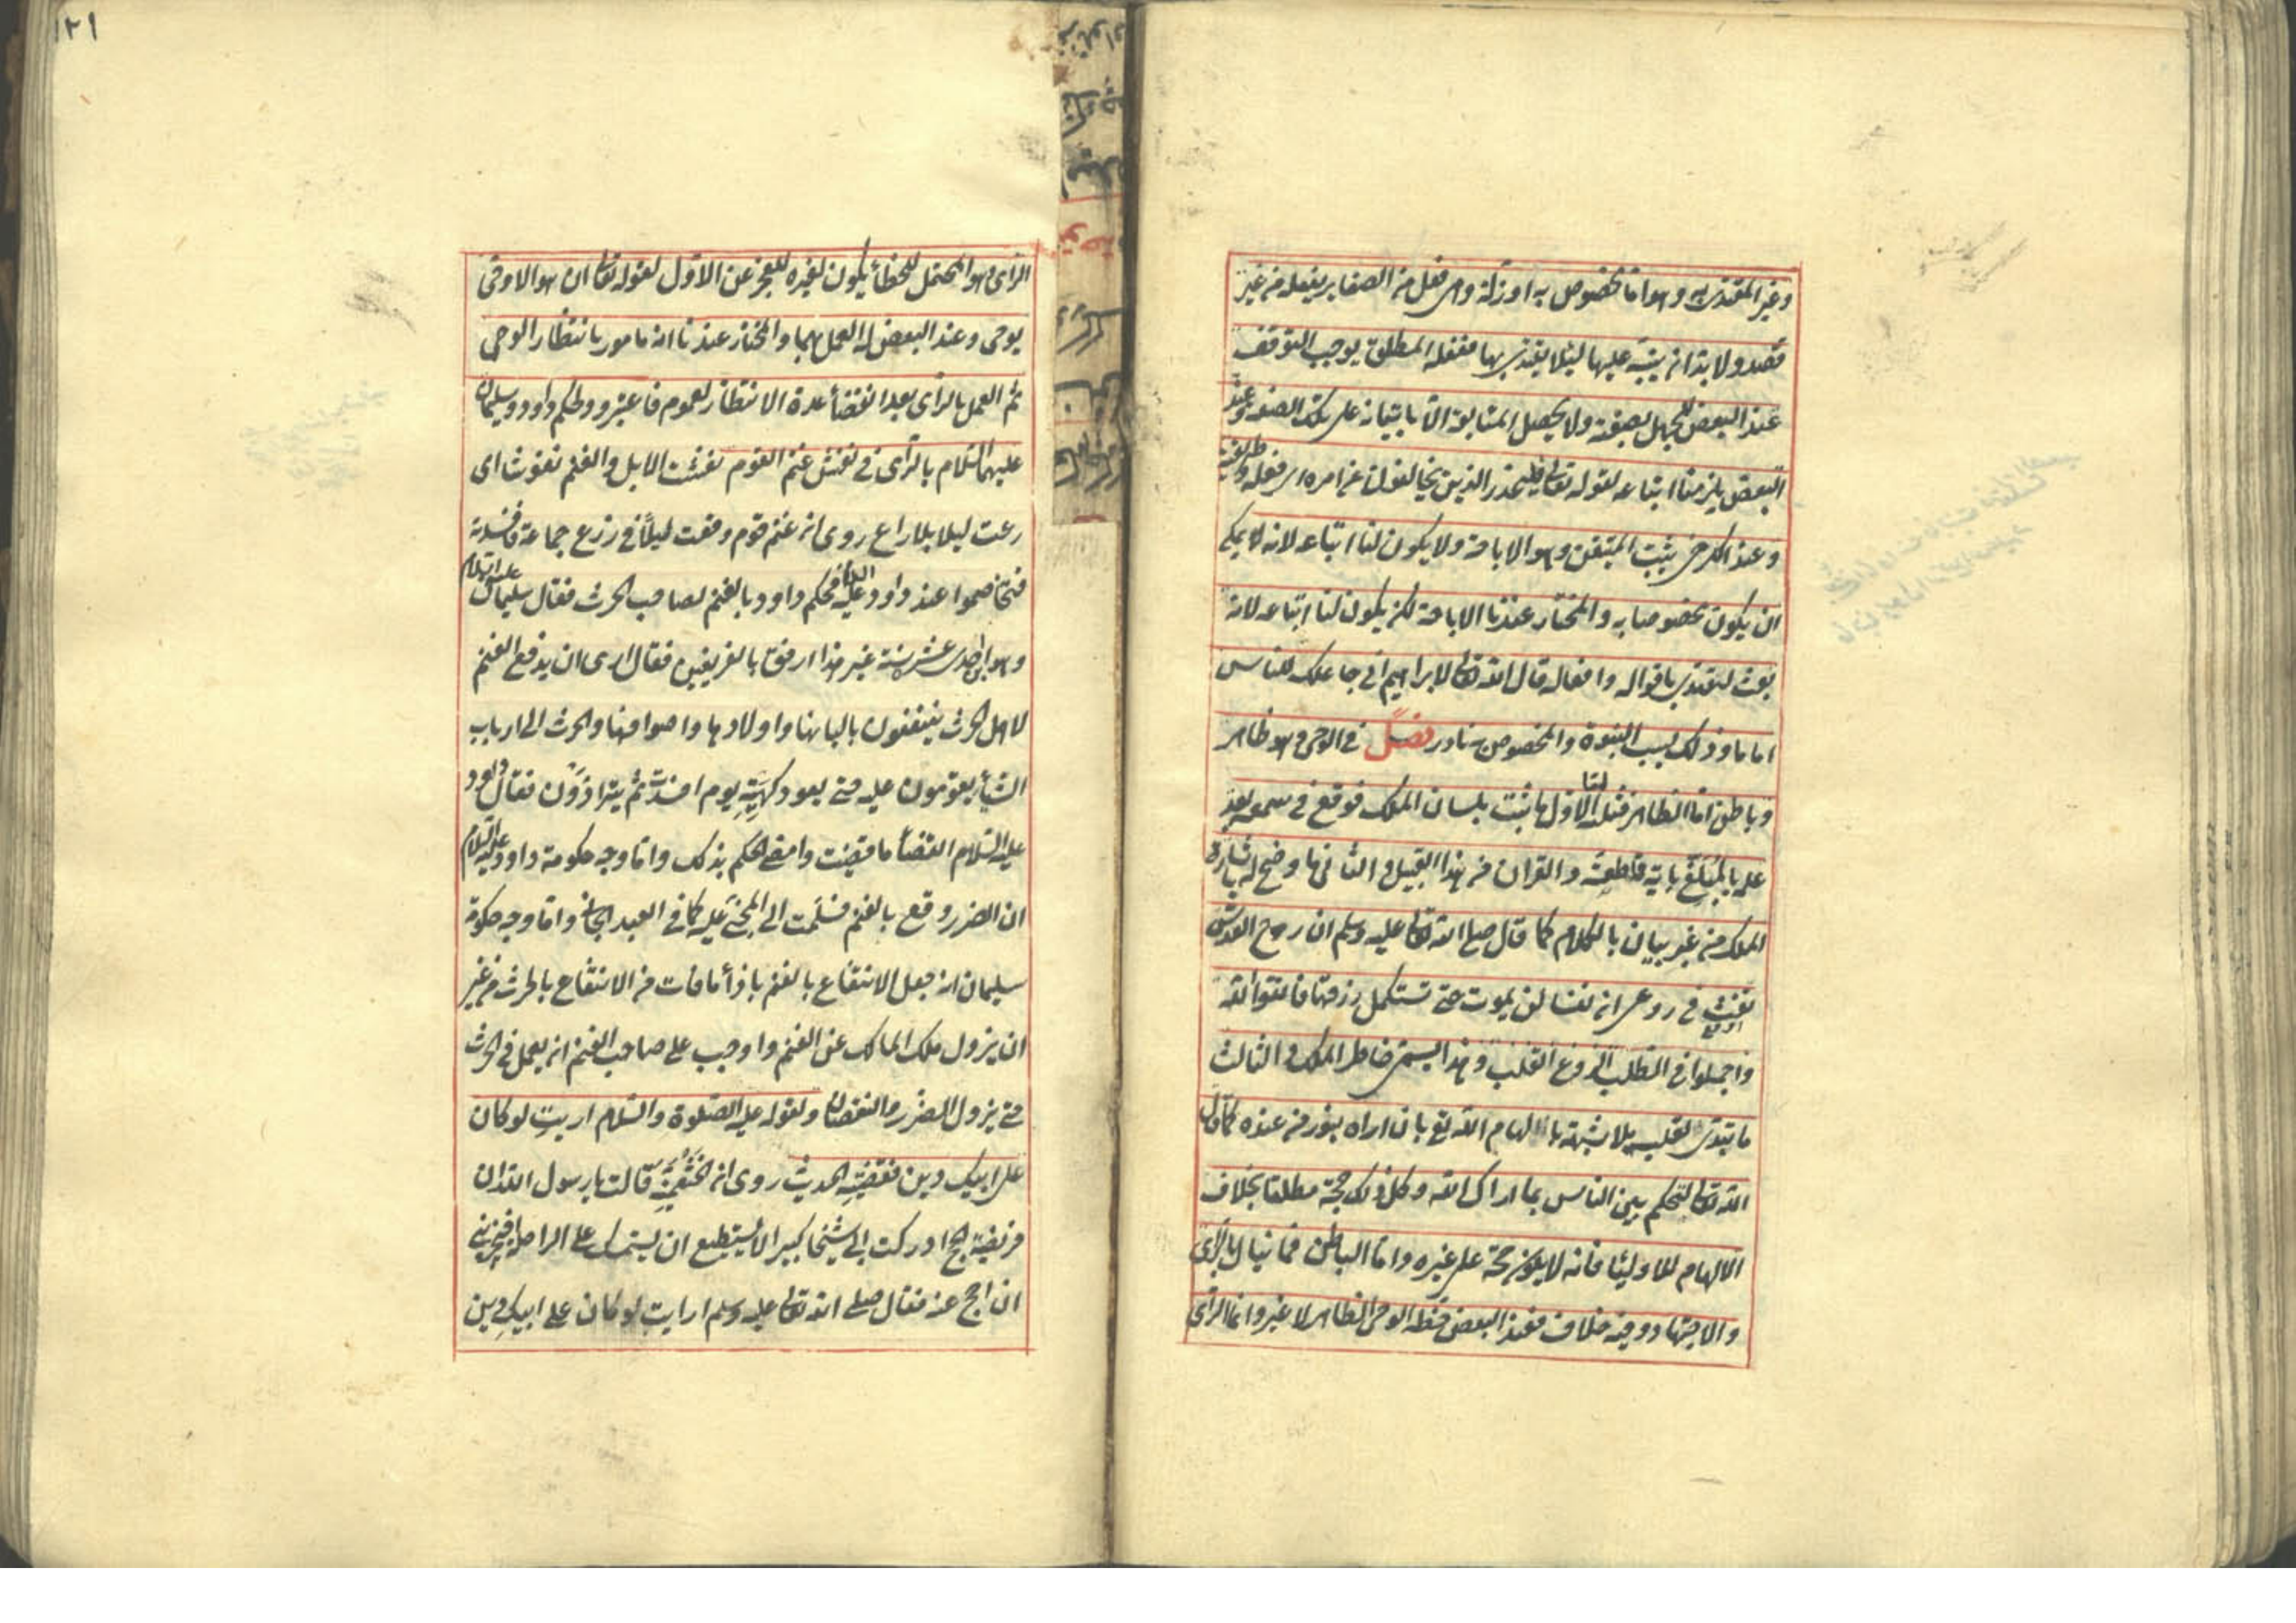 وغير المقتدى به وهو اما مخصوص به او زلة وهي فعل من الصغاير يفعله من غير
قصد ولا بد ان ينبه عليها ليلا يقتدى بها ففعله المطلق يوجب التوقف
عند البعض للجهل بصفته ولا يحصل المتابعة الا باتيانه على تلك الصفة وعند
البعض يلزمنا اتباعه لقوله تعالى فليحذر الذين يخالفون عن امره اى فعله وطريقته
وعند الكرخي يثبت المتيقن وهو الاباحة ولا يكون لنا اتباعه لانه لا يمكن
ان يكون مخصوصا به والمختار عندنا الاباحة لكن يكون لنا اتباعه لانه
بعث ليقتدى باقواله وافعاله قال الله تعالى لابراهيم اني جاعلك للناس
اماما وذلك بسبب النبوة والمخصوص نادر فصل في الوحي وهو ظاهر
وباطن اما الظاهر فثلثة الاول ما ثبت بلسان الملك فوقع في سمعه بعد
علمه بالمبلغ باية قاطعة والقران من هذا القبيل والثاني ما وضح له باشارة
الملك من غير بيان بالكلام كما قال صلى الله تعالى عليه وسلم ان روح القدس
نفث في روعى ان نفسا لن يموت حتى تستكمل رزقها فاتقوا الله
واجملوا في الطلب الروع القلب وهذا يسمى خاطر الملك والثالث
ما تبدى لقلبه بلا شبهة بالهام الله تع بان اراه بنور من عنده كما قال
الله تعالى لتحكم بين الناس بما اراك الله وكل ذلك حجة مطلقا بخلاف
الالهام للاوليا فانه لا يكون حجة على غيره واما الباطن فما ينال بالراى
والاجتهاد وفيه خلاف فعند البعض حظه الوحي الظاهر لا غير وانما الراى
١٢١
الراى وهو المحتمل للخطأ يكون لغيره للعجز عن الاول لقوله تعالى ان هو الا وحى
يوحى وعند البعض له العمل بهما والمختار عندنا انه مامور بانتظار الوحى
ثم العمل بالراى بعد انقضأ مدة الانتظار لعموم فاعتبروا ولحكم داود وسليمان
عليهما السلام بالرأى في نفش غنم القوم نفشت الابل والغنم نفوشا اى
رعت ليلا بلا راع روى ان غنم قوم وقعت ليلًا في زرع جماعة فافسدته
فتخاصموا عند داود عليه السلام فحكم داود بالغنم لصاحب الحرث فقال سليمان عليه السلام
وهو ابن احدى عشر سنة غير هذا ارفق بالفريقين فقال ارى ان يدفع الغنم
لاهل الحرث ينتفعون بالبانها واولادها واصوافها والحرث الى ارباب
الشأ يقومون عليه حتى يعود كهيئته يوم افسدت ثم يترادون فقال داود
عليه السلام القضأ ما قضيت وامضى الحكم بذلك واما وجه حكومة داود عليه السلام
ان الضرر وقع بالغنم فسلمت الى المجنى عليه كما في العبد الجاني واما وجه حكومة
سليمان انه جعل الانتفاع بالغنم بازأ ما فات من الانتفاع بالحرث من غير
ان يزول ملك المالك عن الغنم واوجب على صاحب الغنم ان يعمل في الحرث
حتى يزول الضرر والنقصان ولقوله عليه الصلوة والسلام اريت لو كان
على ابيك دين فقضيته الحديث روى ان الخثعمية قالت يا رسول الله ان
فريضة الحج ادركت ابى شيخا كبيرا لا يستطيع ان يستمسك على الراحلة افيجزيني
ان احج عنه فقال صلى الله تعالى عليه وسلم ارايت لو كان على ابيك دين